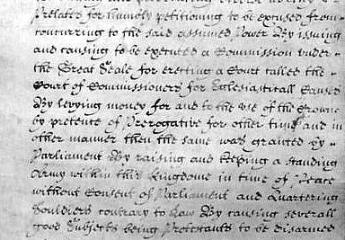 Prelates for humbly petitioning to be excused from
concurring to the said assumed Power By issuing
and causing to be executed a Commission under
the Great Seale for erecting a Court called the
Court of Commissioners for Ecclesiasticall Causes
By levying money for and to the use of the Crowne
by pretence of Prerogative for other time and in
other manner then the same was granted by
Parliament By raising and keeping a standing
Army within this Kingdome in time of Peace
without Consent of Parliament and Quartering
Souldiers contrary to Law By causing severall
good Subjects being Protestants to be disarmed